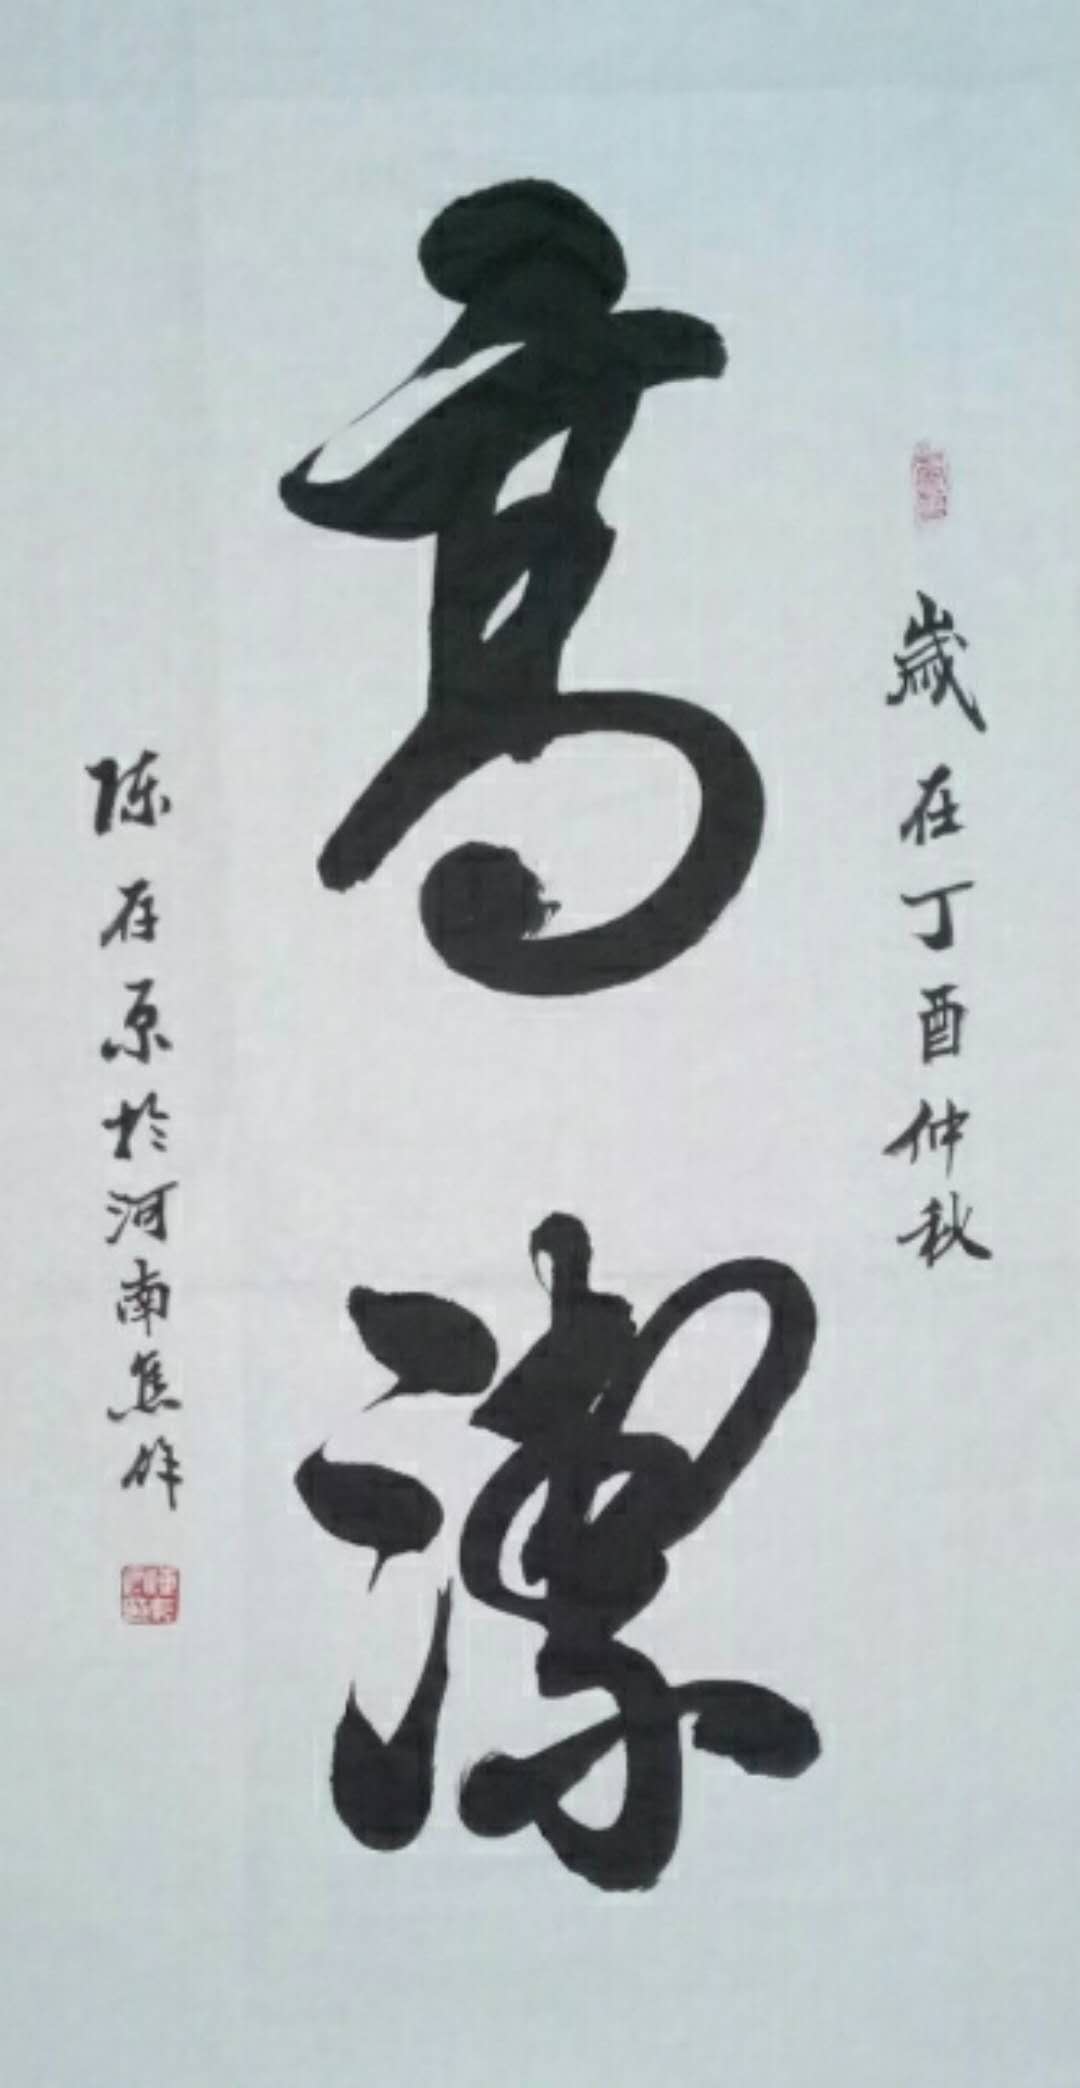 歲在丁酉仲秋
高潔
陈存原於河南焦作